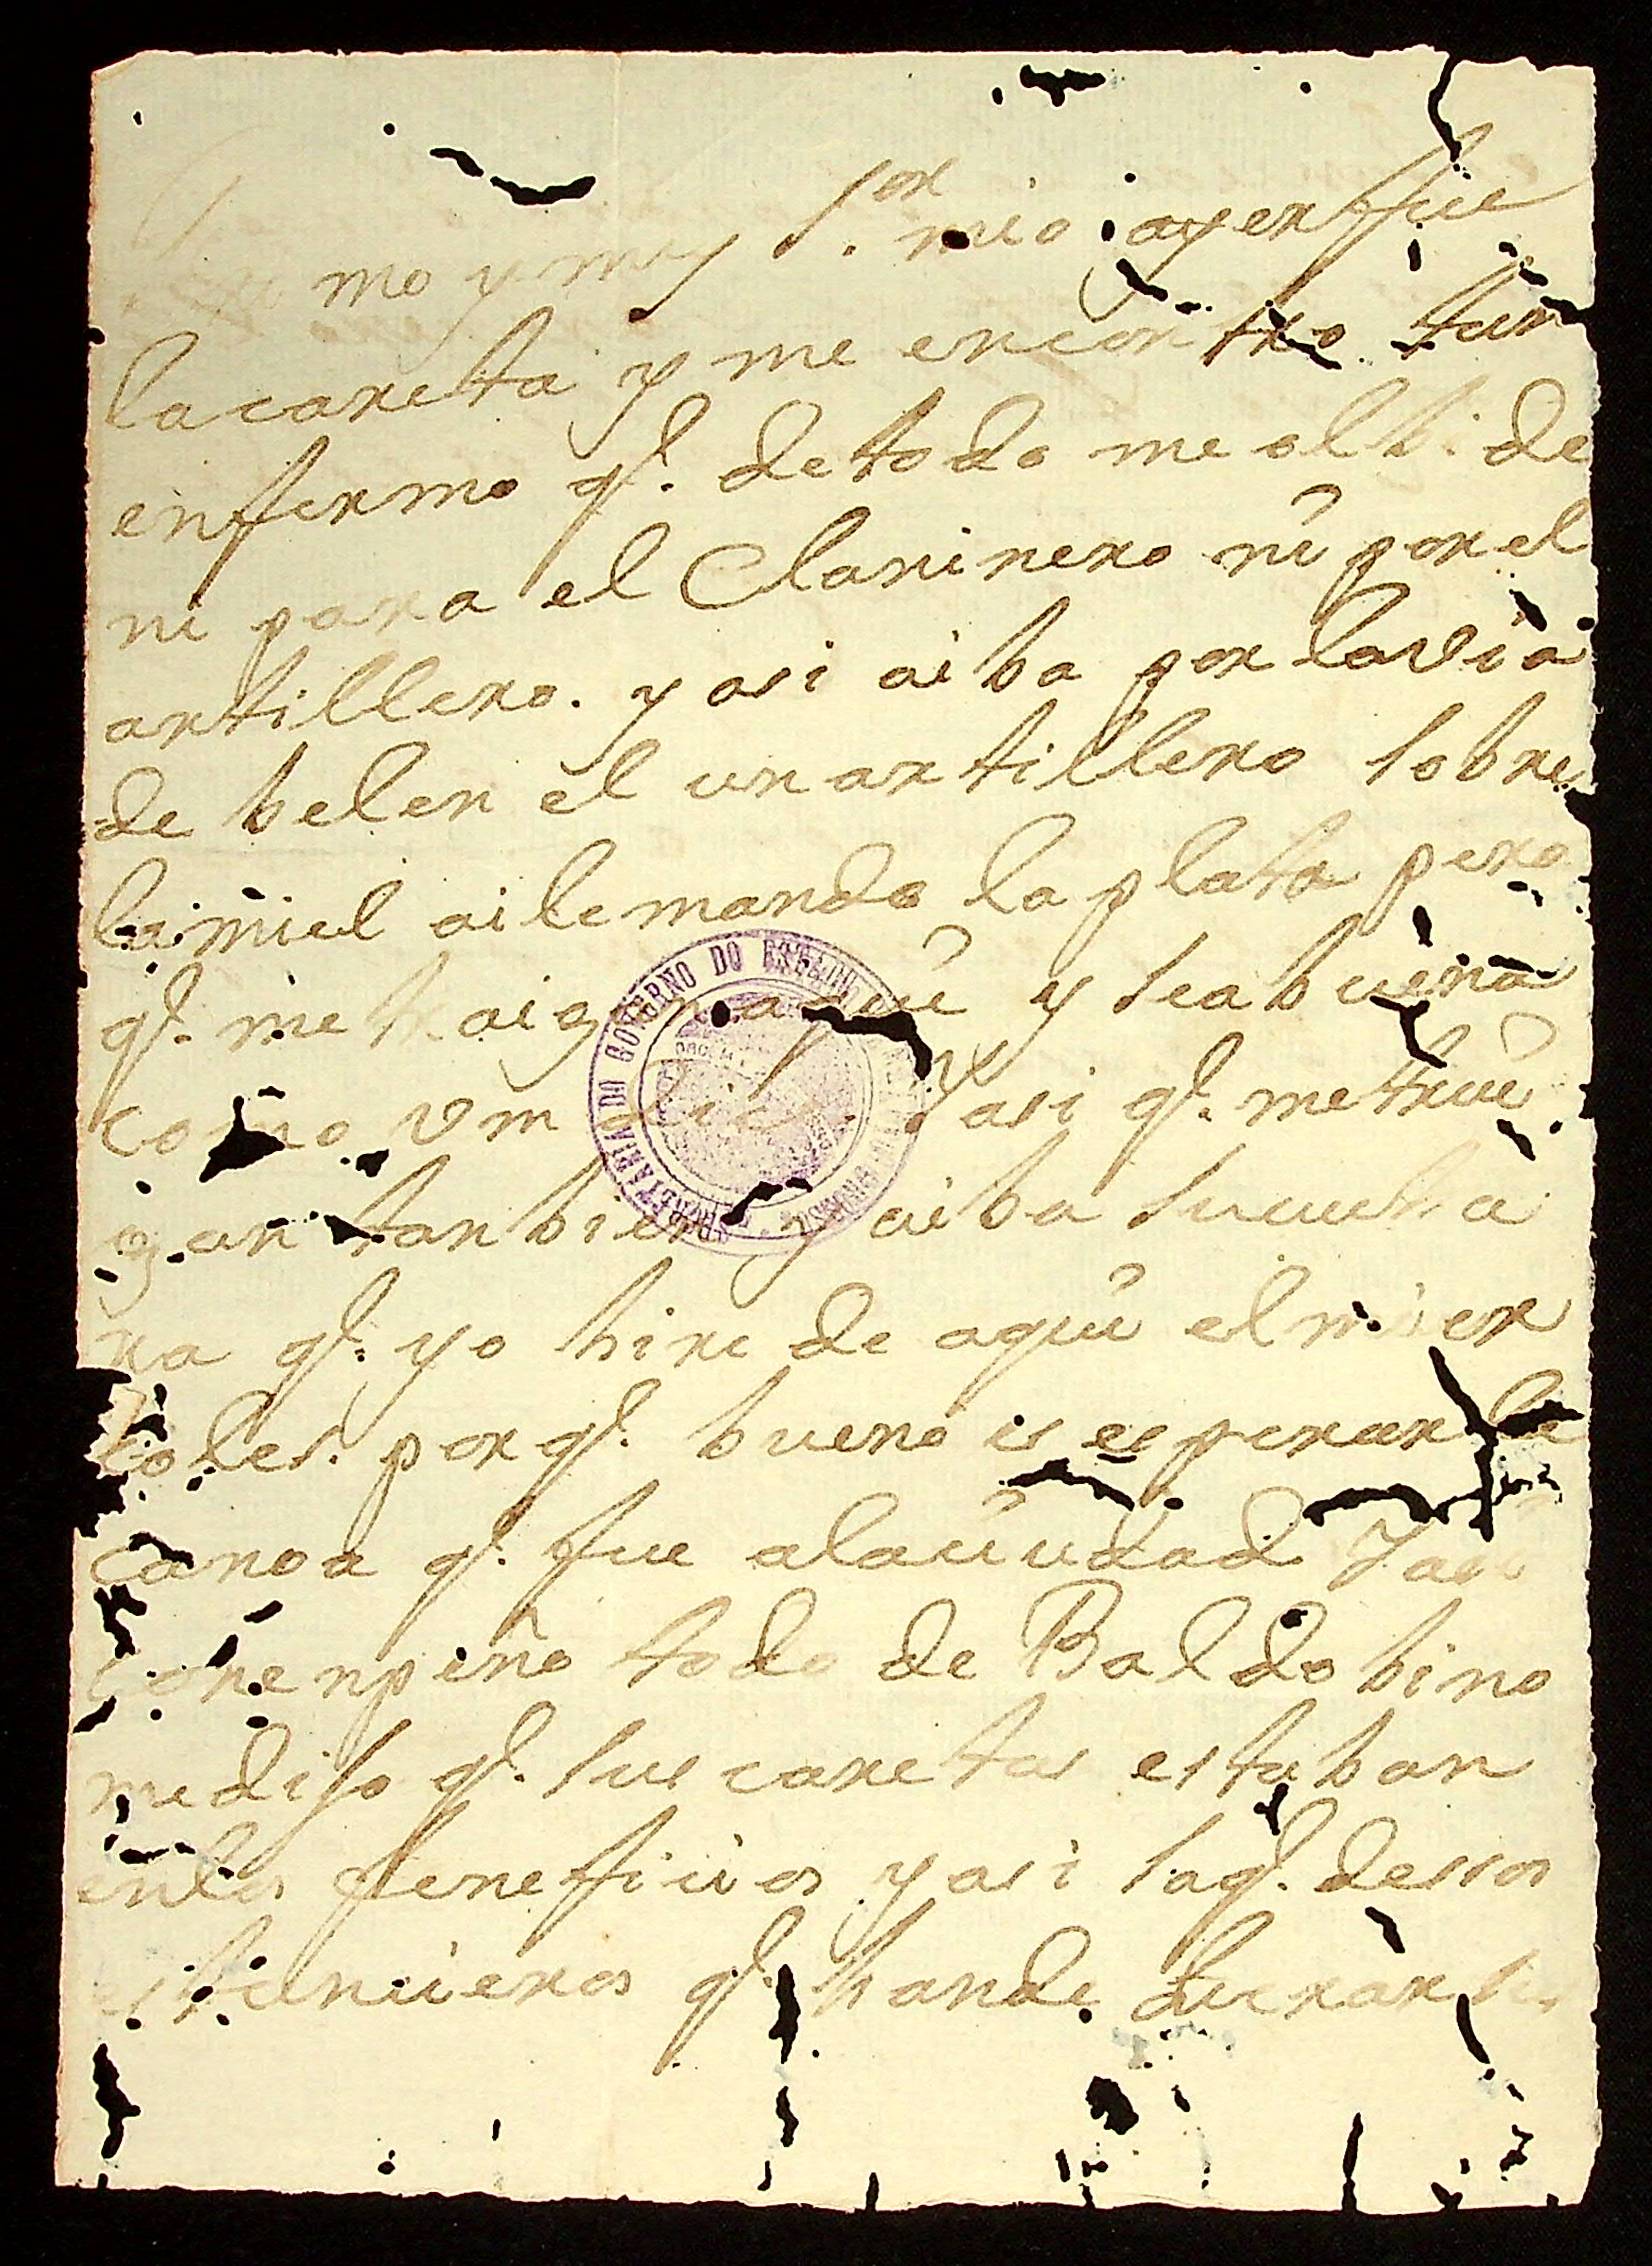 mo y muy S.or mio ayer fue
la careta y me encontro tan
enfermo q.e de todo me olbide
ni para el Clarinero ni por el
artillero. y asi ai ba por la via
de belen el un artillero sobre
la miel ai le mando la plata pero
q.e me traigan aqui y sea buena
como Vm dise. Y asi q.e me trai
gan tanbien y ai ba su
ra q.e yo hire de aqui el mier
coles. por q.e bueno es esperar la
canoa q.e fue ala ciudad Y asi
con enpeño todo de Baldobino
me diso q.e sus caretas estaban
en los beneficios y asi saq.e de sos
estancieros q.e han de
SECRETARIA DO GOVERNO DO ESTADO